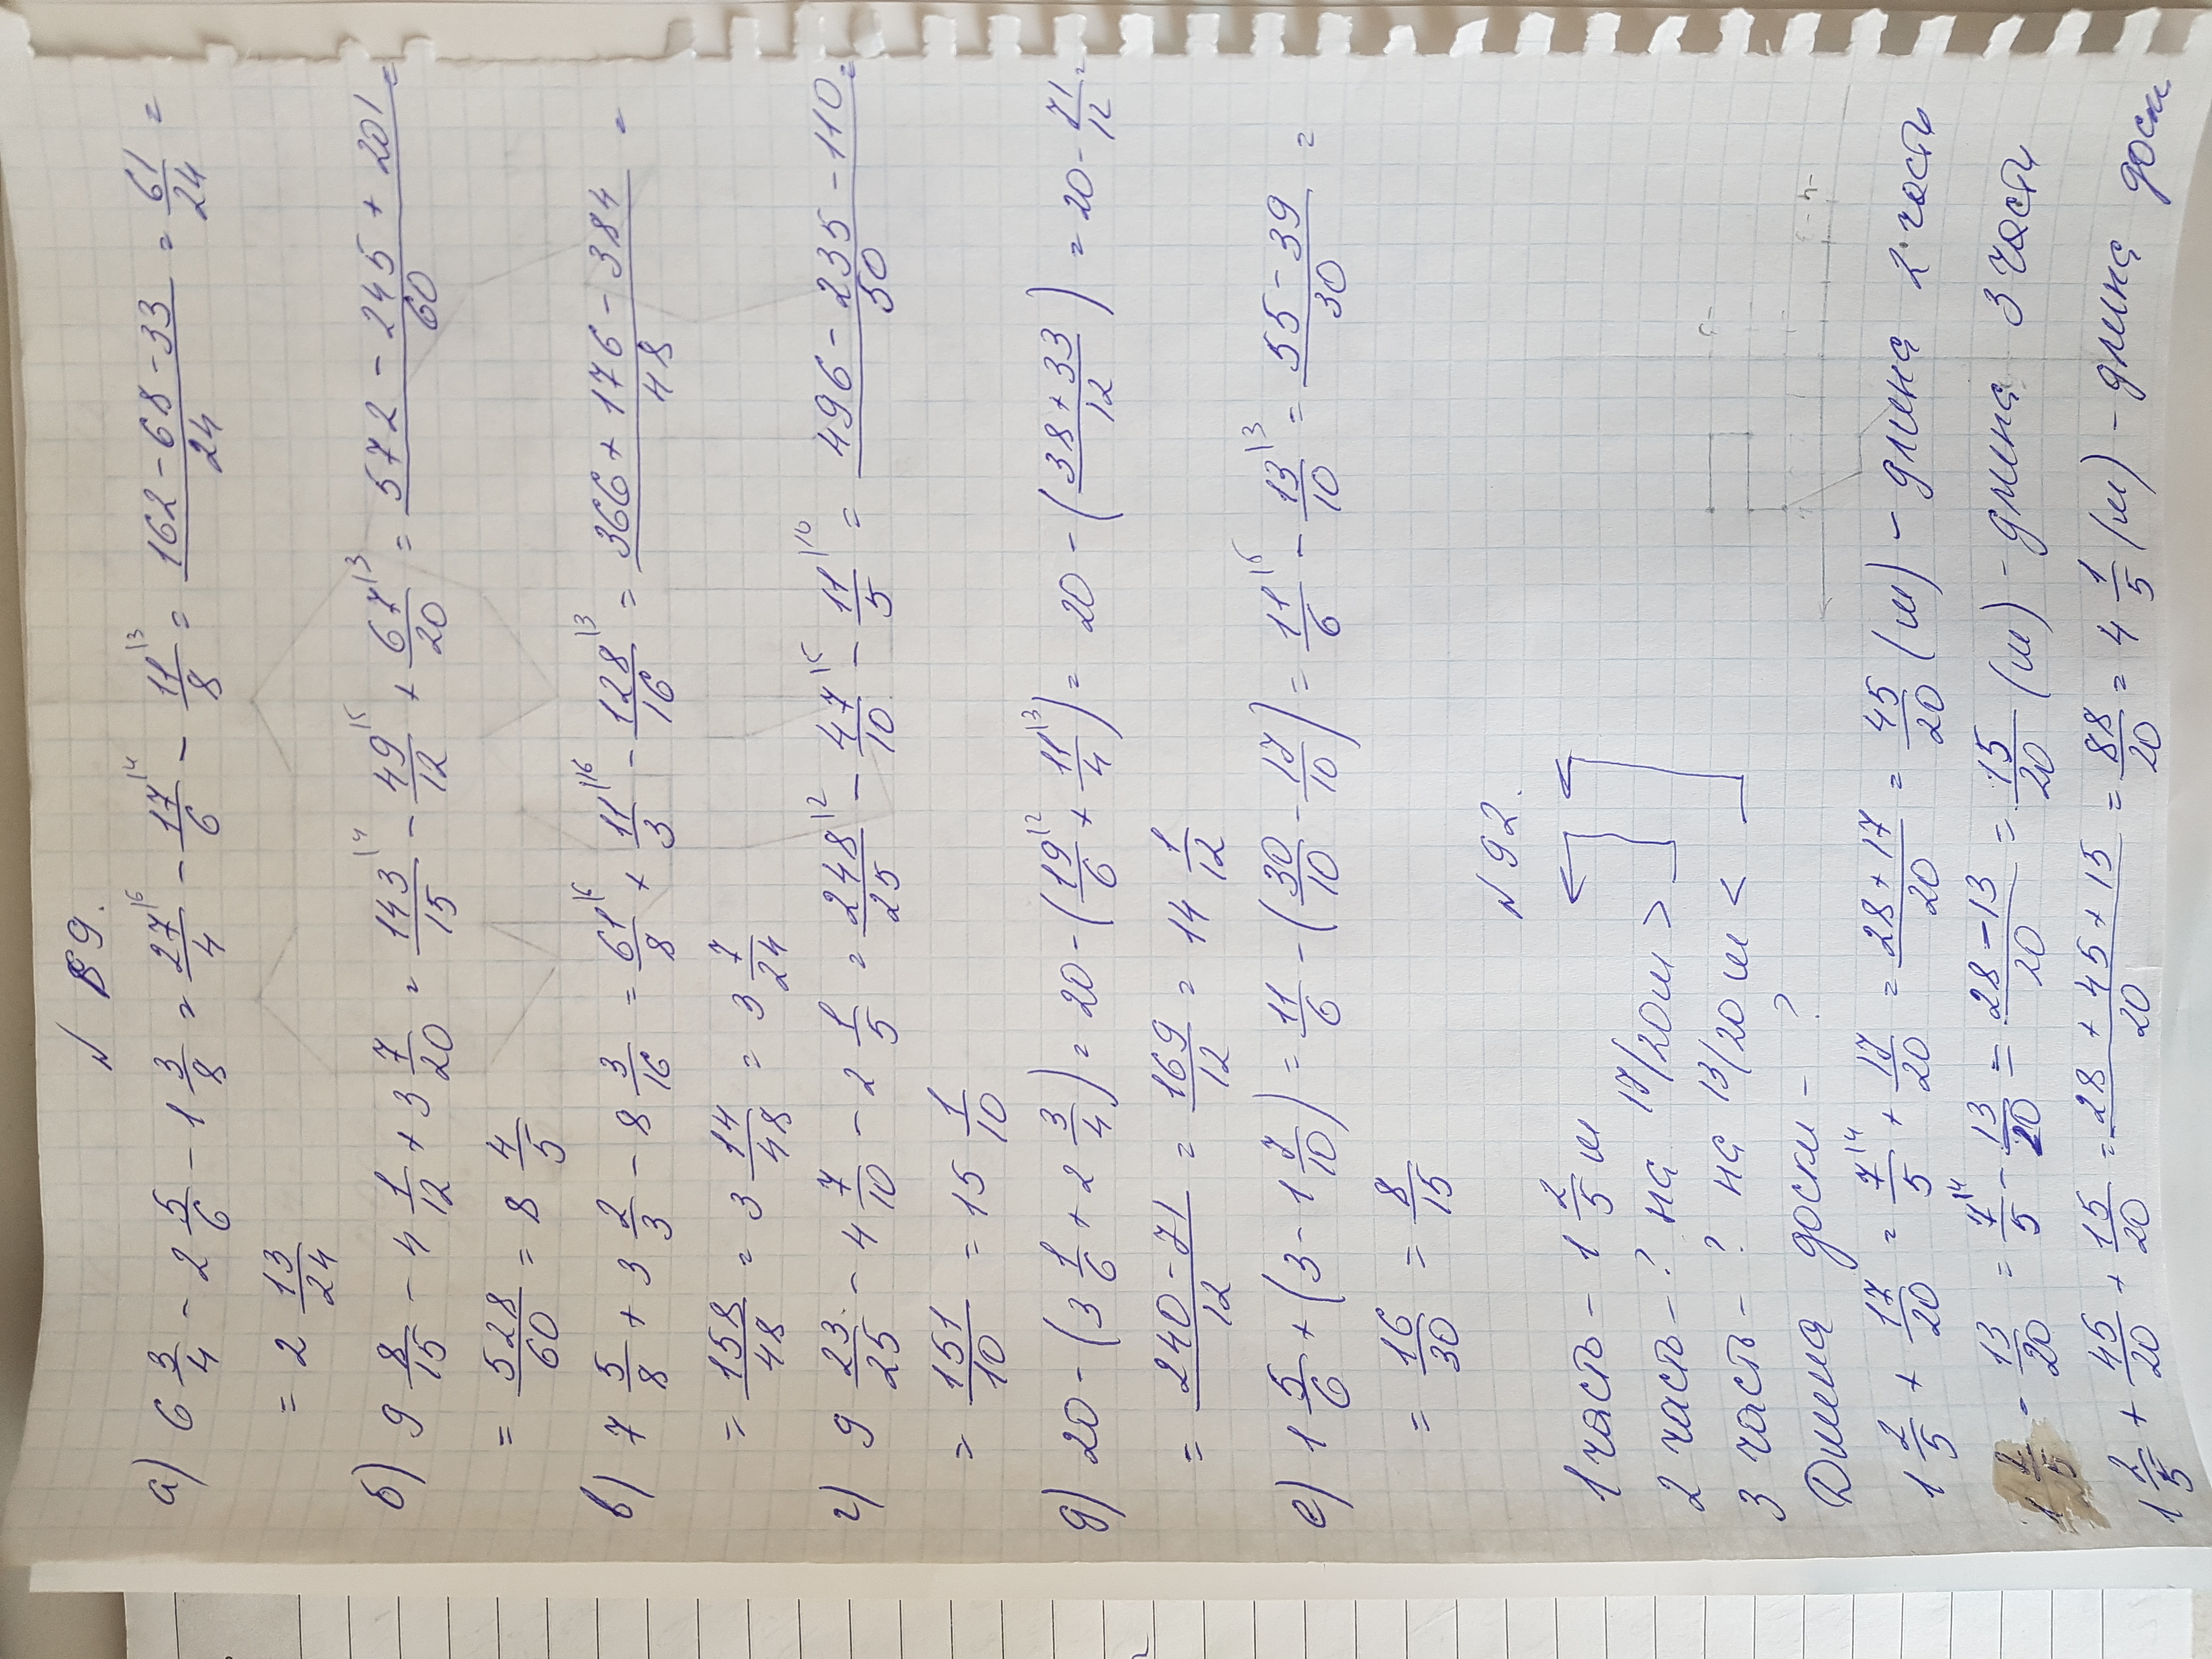 N 89.
а) 6 3/4 - 2 5/6 - 1 3/8 = 27/4|6 - 17/6|4 - 11/8|3 = 162-68-33/24 = 61/24 =
= 2 13/24
б) 9 8/15 - 4 1/12 + 3 7/20 = 143/15|4 - 49/12|5 + 67/20|3 = 572-245+201/60 =
= 528/60 = 8 4/5
в) 7 5/8 + 3 2/3 - 8 3/16 = 61/8|6 + 11/3|16 - 128/16|3 = 366+176-384/48 =
= 158/48 = 3 14/48 = 3 7/24
г) 9 23/25 - 4 7/10 - 2 1/5 = 248/25|2 - 47/10|5 - 11/5|10 = 496-235-110/50 =
= 151/10 = 15 1/10
д) 20-(3 1/6 + 2 3/4) = 20-(19/6|2 + 11/4|3) = 20-(38+33/12) = 20-71/12 =
= 240-71/12 = 169/12 = 14 1/12
е) 1 5/6 + (3-1 7/10) = 11/6 - (30/10 - 17/10) = 11/6|5 - 13/10|3 = 55-39/30 =
= 16/30 = 8/15
N 92.
1 часть - 1 2/5 м
2 часть - ? на 17/20 м >
3 часть - ? на 13/20 м <
Длина доски - ?
1 2/5 + 17/20 = 7/5|4 + 17/20 = 28+17/20 = 45/20 (м) - длина 2 части
1 2/5 - 13/20 = 7/5|4 - 13/20 = 28-13/20 = 15/20 (м) - длина 3 части
1 2/5 + 45/20 + 15/20 = 28+45+15/20 = 88/20 = 4 1/5 (м) - длина доски